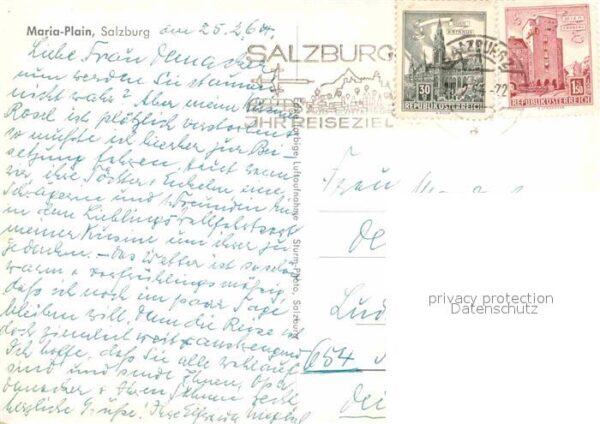 Maria-Plain, Salzburg am 25.2.64.
Liebe Frau
nun werden Sie staunen
nicht wahr? Aber meine
Rosel ist plötzlich verstorben
so mußte ich hierher zur Bei-
setzung fahren. Heut waren
wir, ihre Töchter + Enkelin eine
Schwägerin und 1 Freundin hier
in dem Lieblingswallfahrtsort
meiner Kusine um ihrer zu
gedenken. - Das Wetter ist so schön
warm + vorfrühlingsmäßig,
daß ich noch ein paar Tage
bleiben will, denn die Reise ist
doch ziemlich weit + anstrengend
Ich hoffe, daß Sie alle wohlauf
sind und sende Ihnen, Opa
+ Ihren Söhnen recht
herzliche Grüße! Ihre
SALZBURG
IHR REISEZIEL
SALZBURG
30
REPUBLIK ÖSTERREICH
1.50
REPUBLIK ÖSTERREICH
Echtfarbige Luftaufnahme Sturm-Photo, Salzburg
Frau
De
Lud
654
dei
privacy protection
Datenschutz